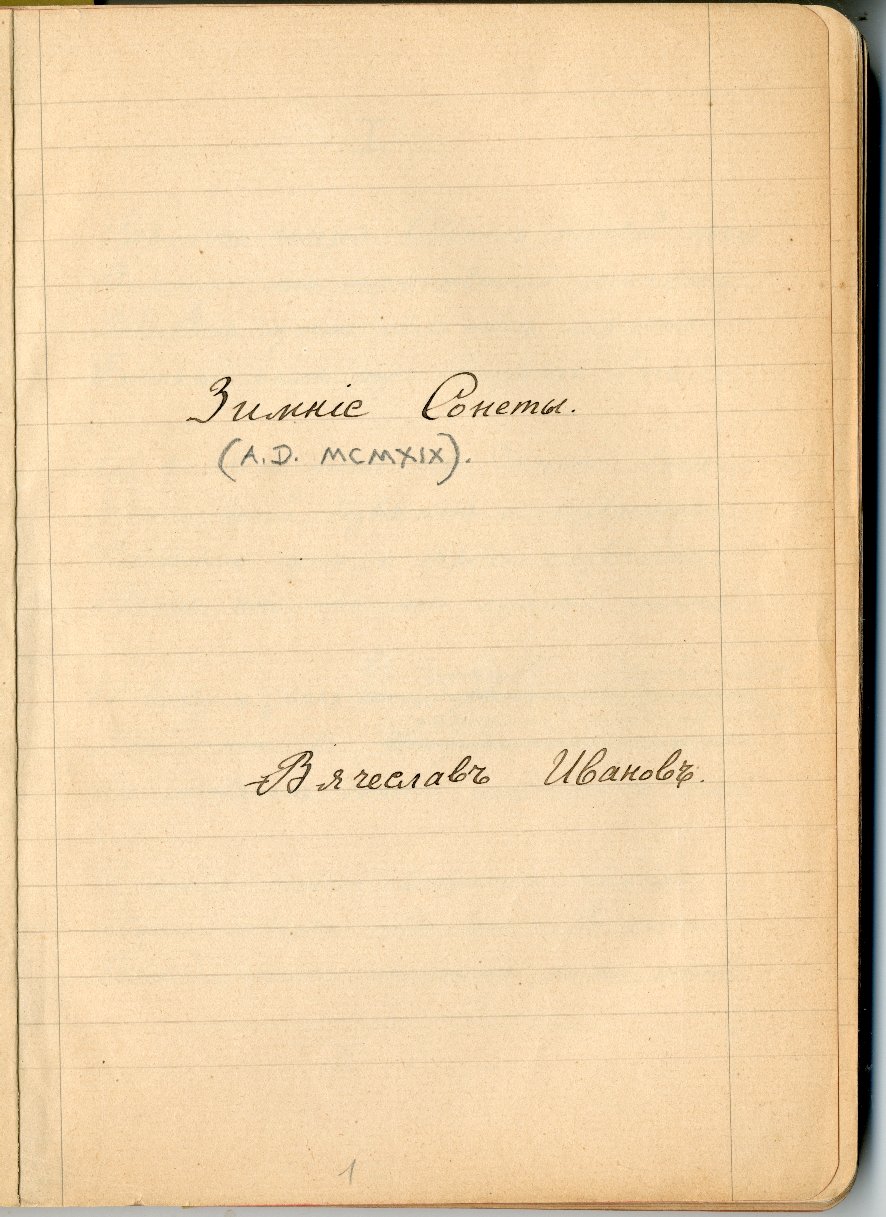 Зимніе Сонеты.
(A.D. MCMXIX).
Вячеславъ Ивановъ.
1